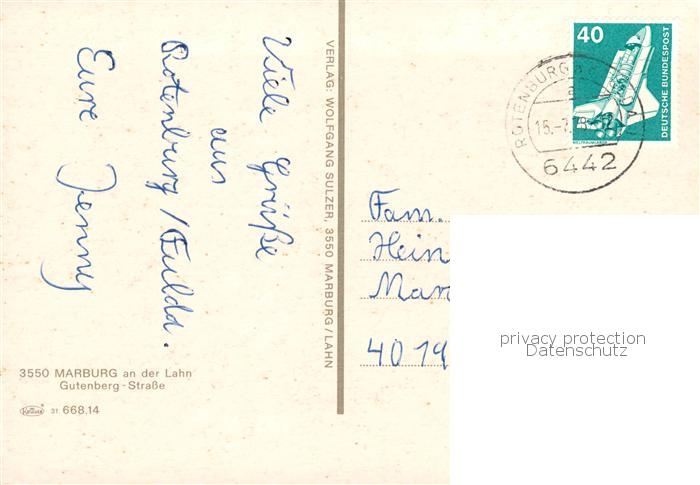 Viele Grüße
aus
Rotenburg/Fulda.
Eure Jenny
VERLAG: WOLFGANG SULZER, 3550 MARBURG/LAHN
3550 MARBURG an der Lahn
Gutenberg-Straße
31. 668.14
40
DEUTSCHE BUNDESPOST
ROTENBURG
6442
Fam.
Hein
Mar
4019
privacy protection
Datenschutz